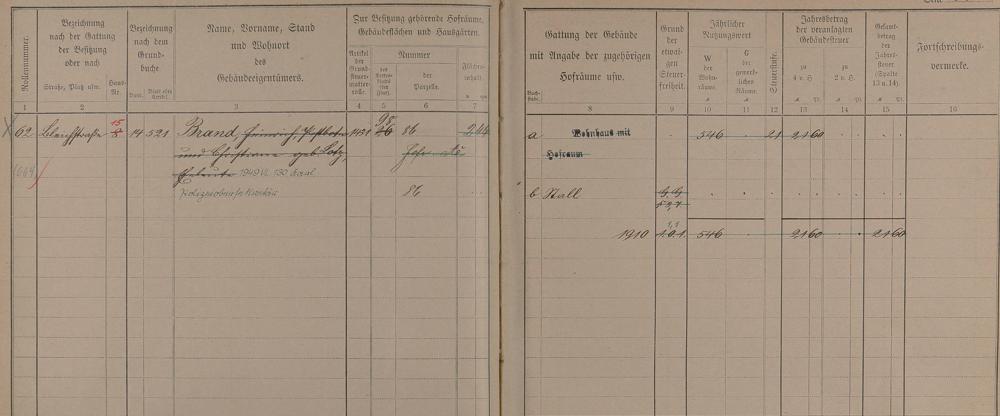 Rollennummer.
Bezeichnung
nach der Gattung
der Besitzung
oder nach
Straße, Platz usw.
Haus-
Nr.
Bezeichnung
nach dem
Grund-
buche
Band. Blatt oder Artikel
Name, Vorname, Stand
und Wohnort
des
Gebäudeeigentümers.
Zur Besitzung gehörende Hofräume,
Gebäudeflächen und Hausgärten.
Artikel
der
Grund-
steuer-
mutter-
rolle.
Nummer
des
Karten-
blatts
(der
Flur).
der
Parzelle.
Flächen-
inhalt.
1 2 3 4 5 6 7
62 Bleichstraße 15 8 14 521 Brand, Heinrich Postbote 1431 98 26 86 2 44
und Christiane geb. Lotz,
(664) Eheleute 1949 VI. 130 Karl
86
Gattung der Gebäude
mit Angabe der zugehörigen
Hofräume usw.
Buch-
stabe.
Grund
der
etwai-
gen
Steuer-
freiheit.
Jährlicher
Nutzungswert
W
der
Wohn-
räume.
G
der
gewerb-
lichen
Räume.
Steuerstufe.
Jahresbetrag
der veranlagten
Gebäudesteuer
zu
4 v. H.
zu
2 v. H.
Gesamt-
betrag
der
Jahres-
steuer
(Spalte
13 u. 14).
Fortschreibungs-
vermerke.
8 9 10 11 12 13 14 15 16
a Wohnhaus mit 546 21 21 60
Hofraum
b Stall
1910 1.0.1. 546 21 60 21 60